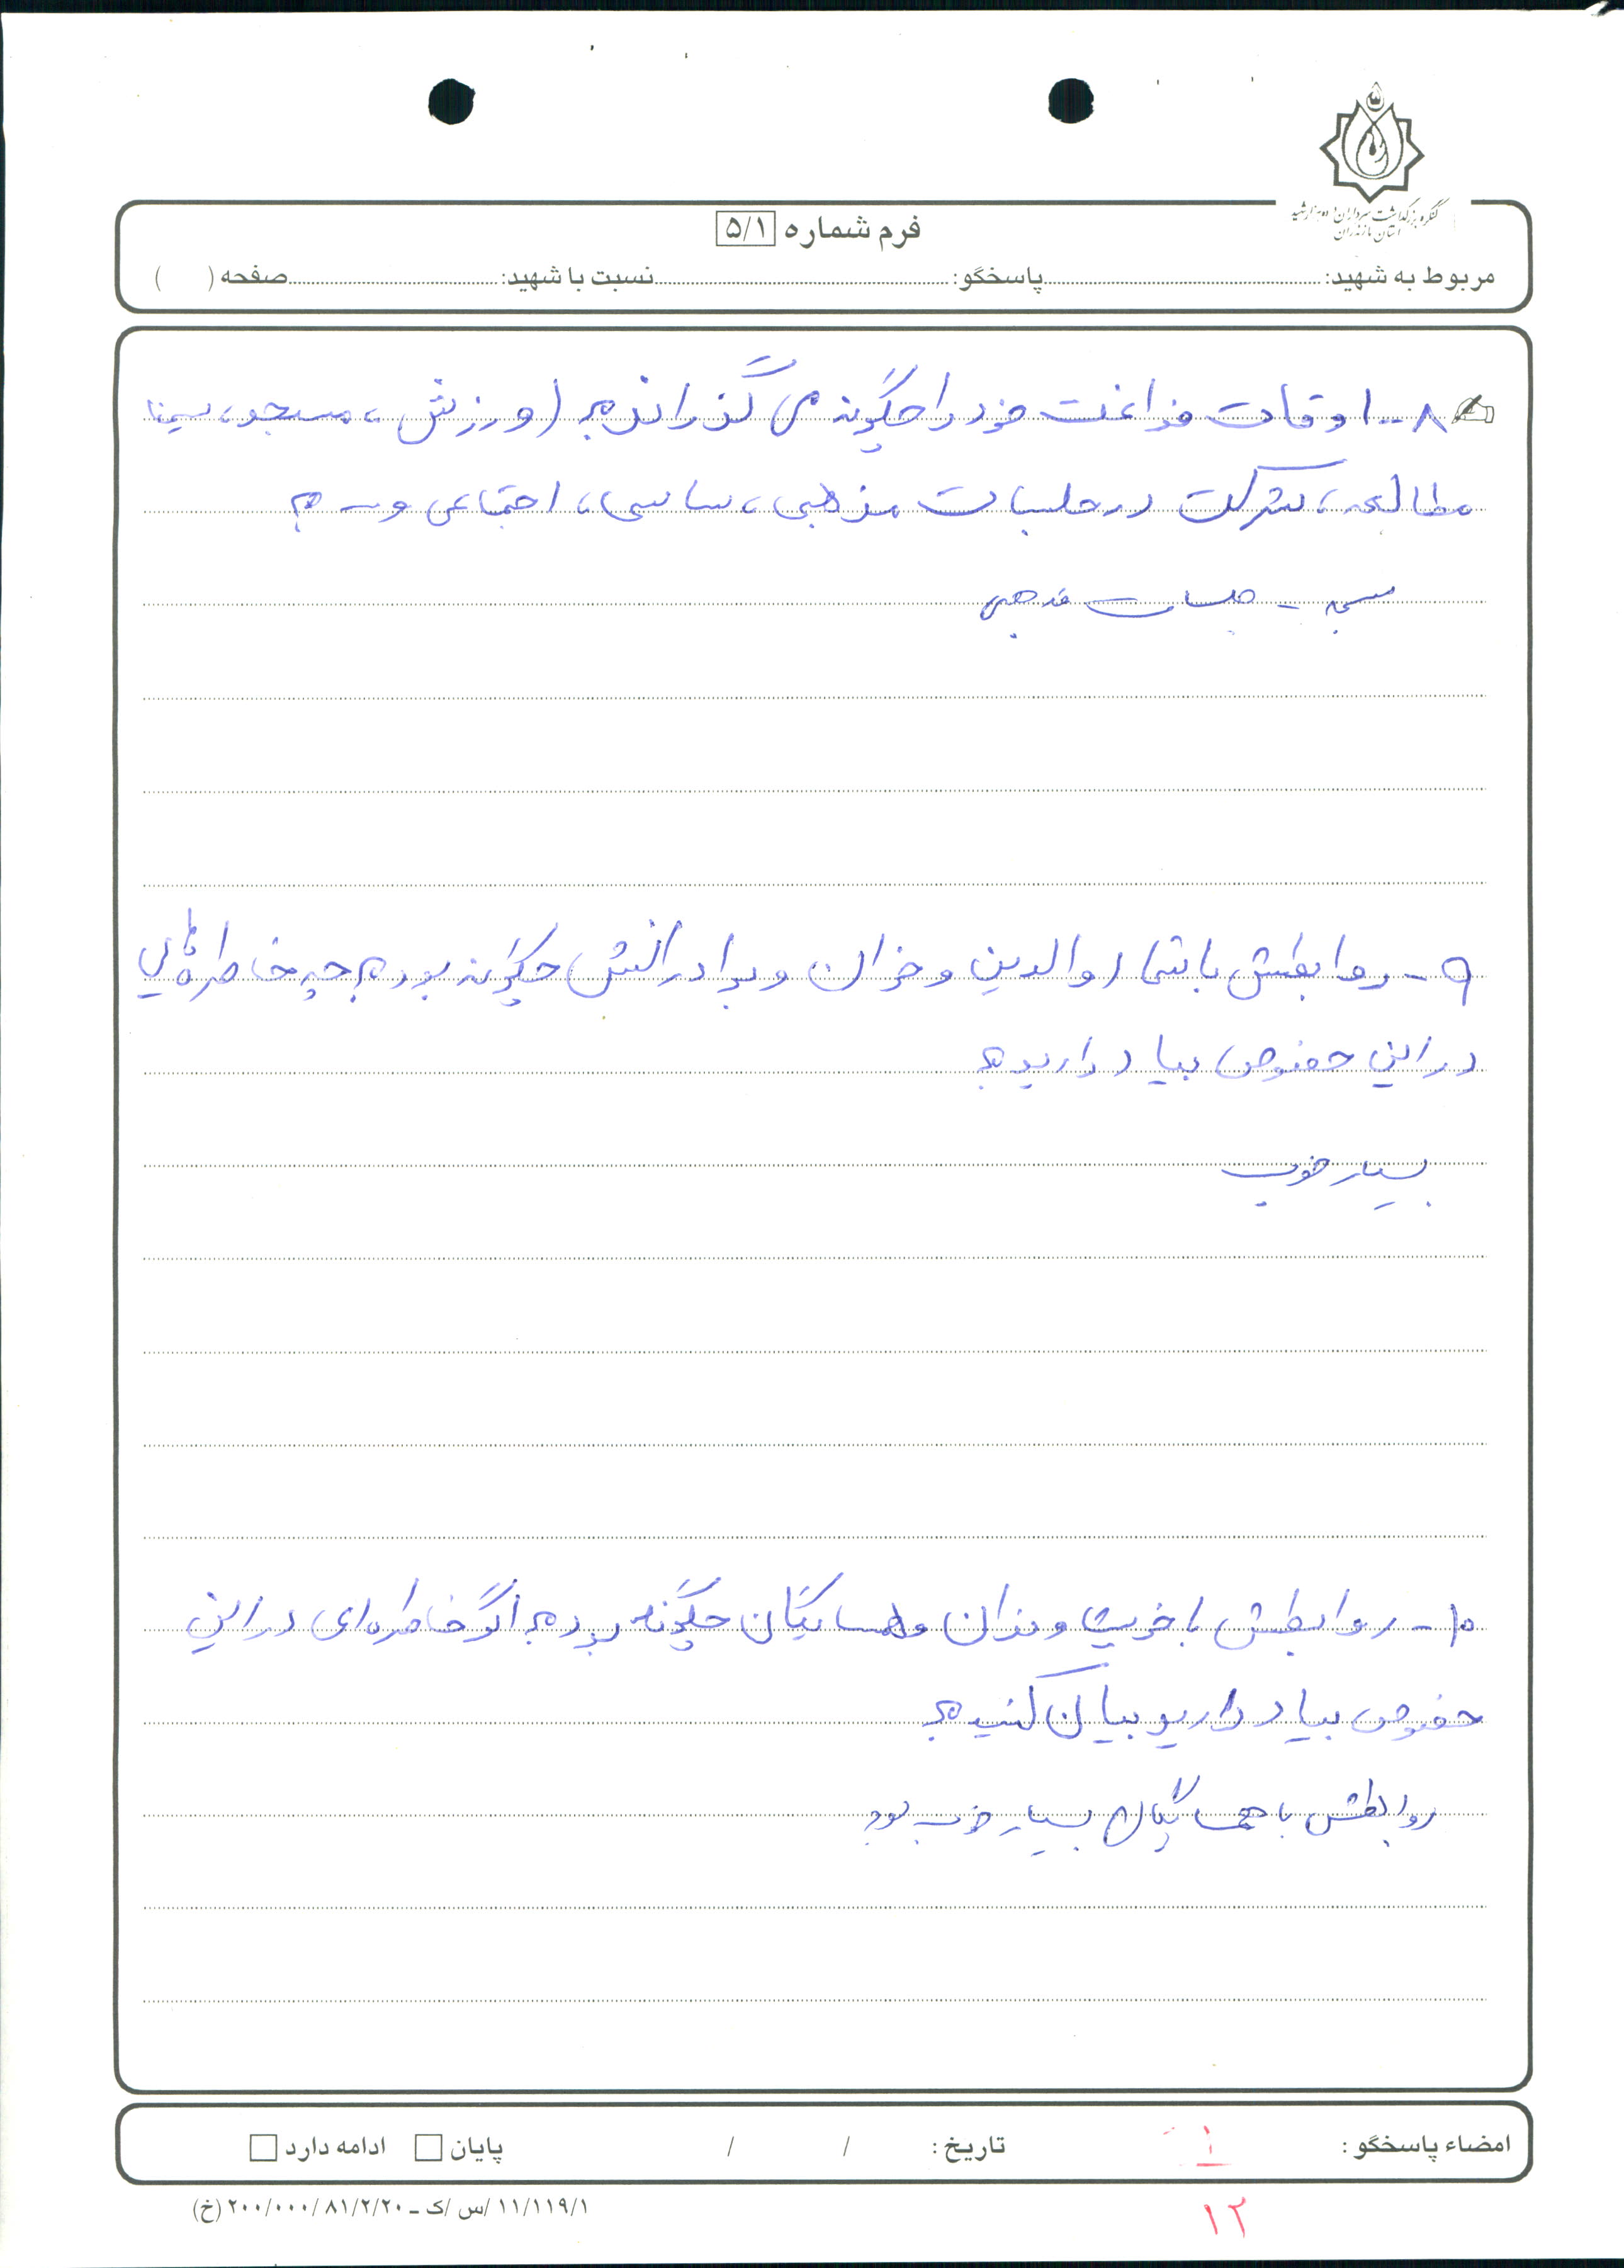 کنگره بزرگداشت سرداران و ده هزار شهید
استان مازندران
فرم شماره ۵/۱
مربوط به شهید: پاسخگو: نسبت با شهید: صفحه ( )
۸- اوقات فراغت خود را چگونه می گذراند؟ (ورزش، مسجد، سینما
مطالعه، شرکت در جلسات مذهبی، سیاسی، اجتماعی و ...؟
مسجد - جلسات مذهبی
۹- روابطش با شما و والدین و خواهران و برادرانش چگونه بود؟ چه خاطره ای
در این خصوص بیاد دارید؟
بسیار خوب
۱۰- روابطش با خویشاوندان و همسایگان چگونه بود؟ اگر خاطره ای در این
خصوص بیاد دارید بیان کنید؟
روابطش با همسایگان بسیار خوب بود
امضاء پاسخگو : تاریخ : / / پایان ادامه دارد
۱۱/۱۱۹/۱ /س /ک ـ ۲۰۰/۰۰۰/ ۸۱/۲/۲۰ (خ)
۱۲